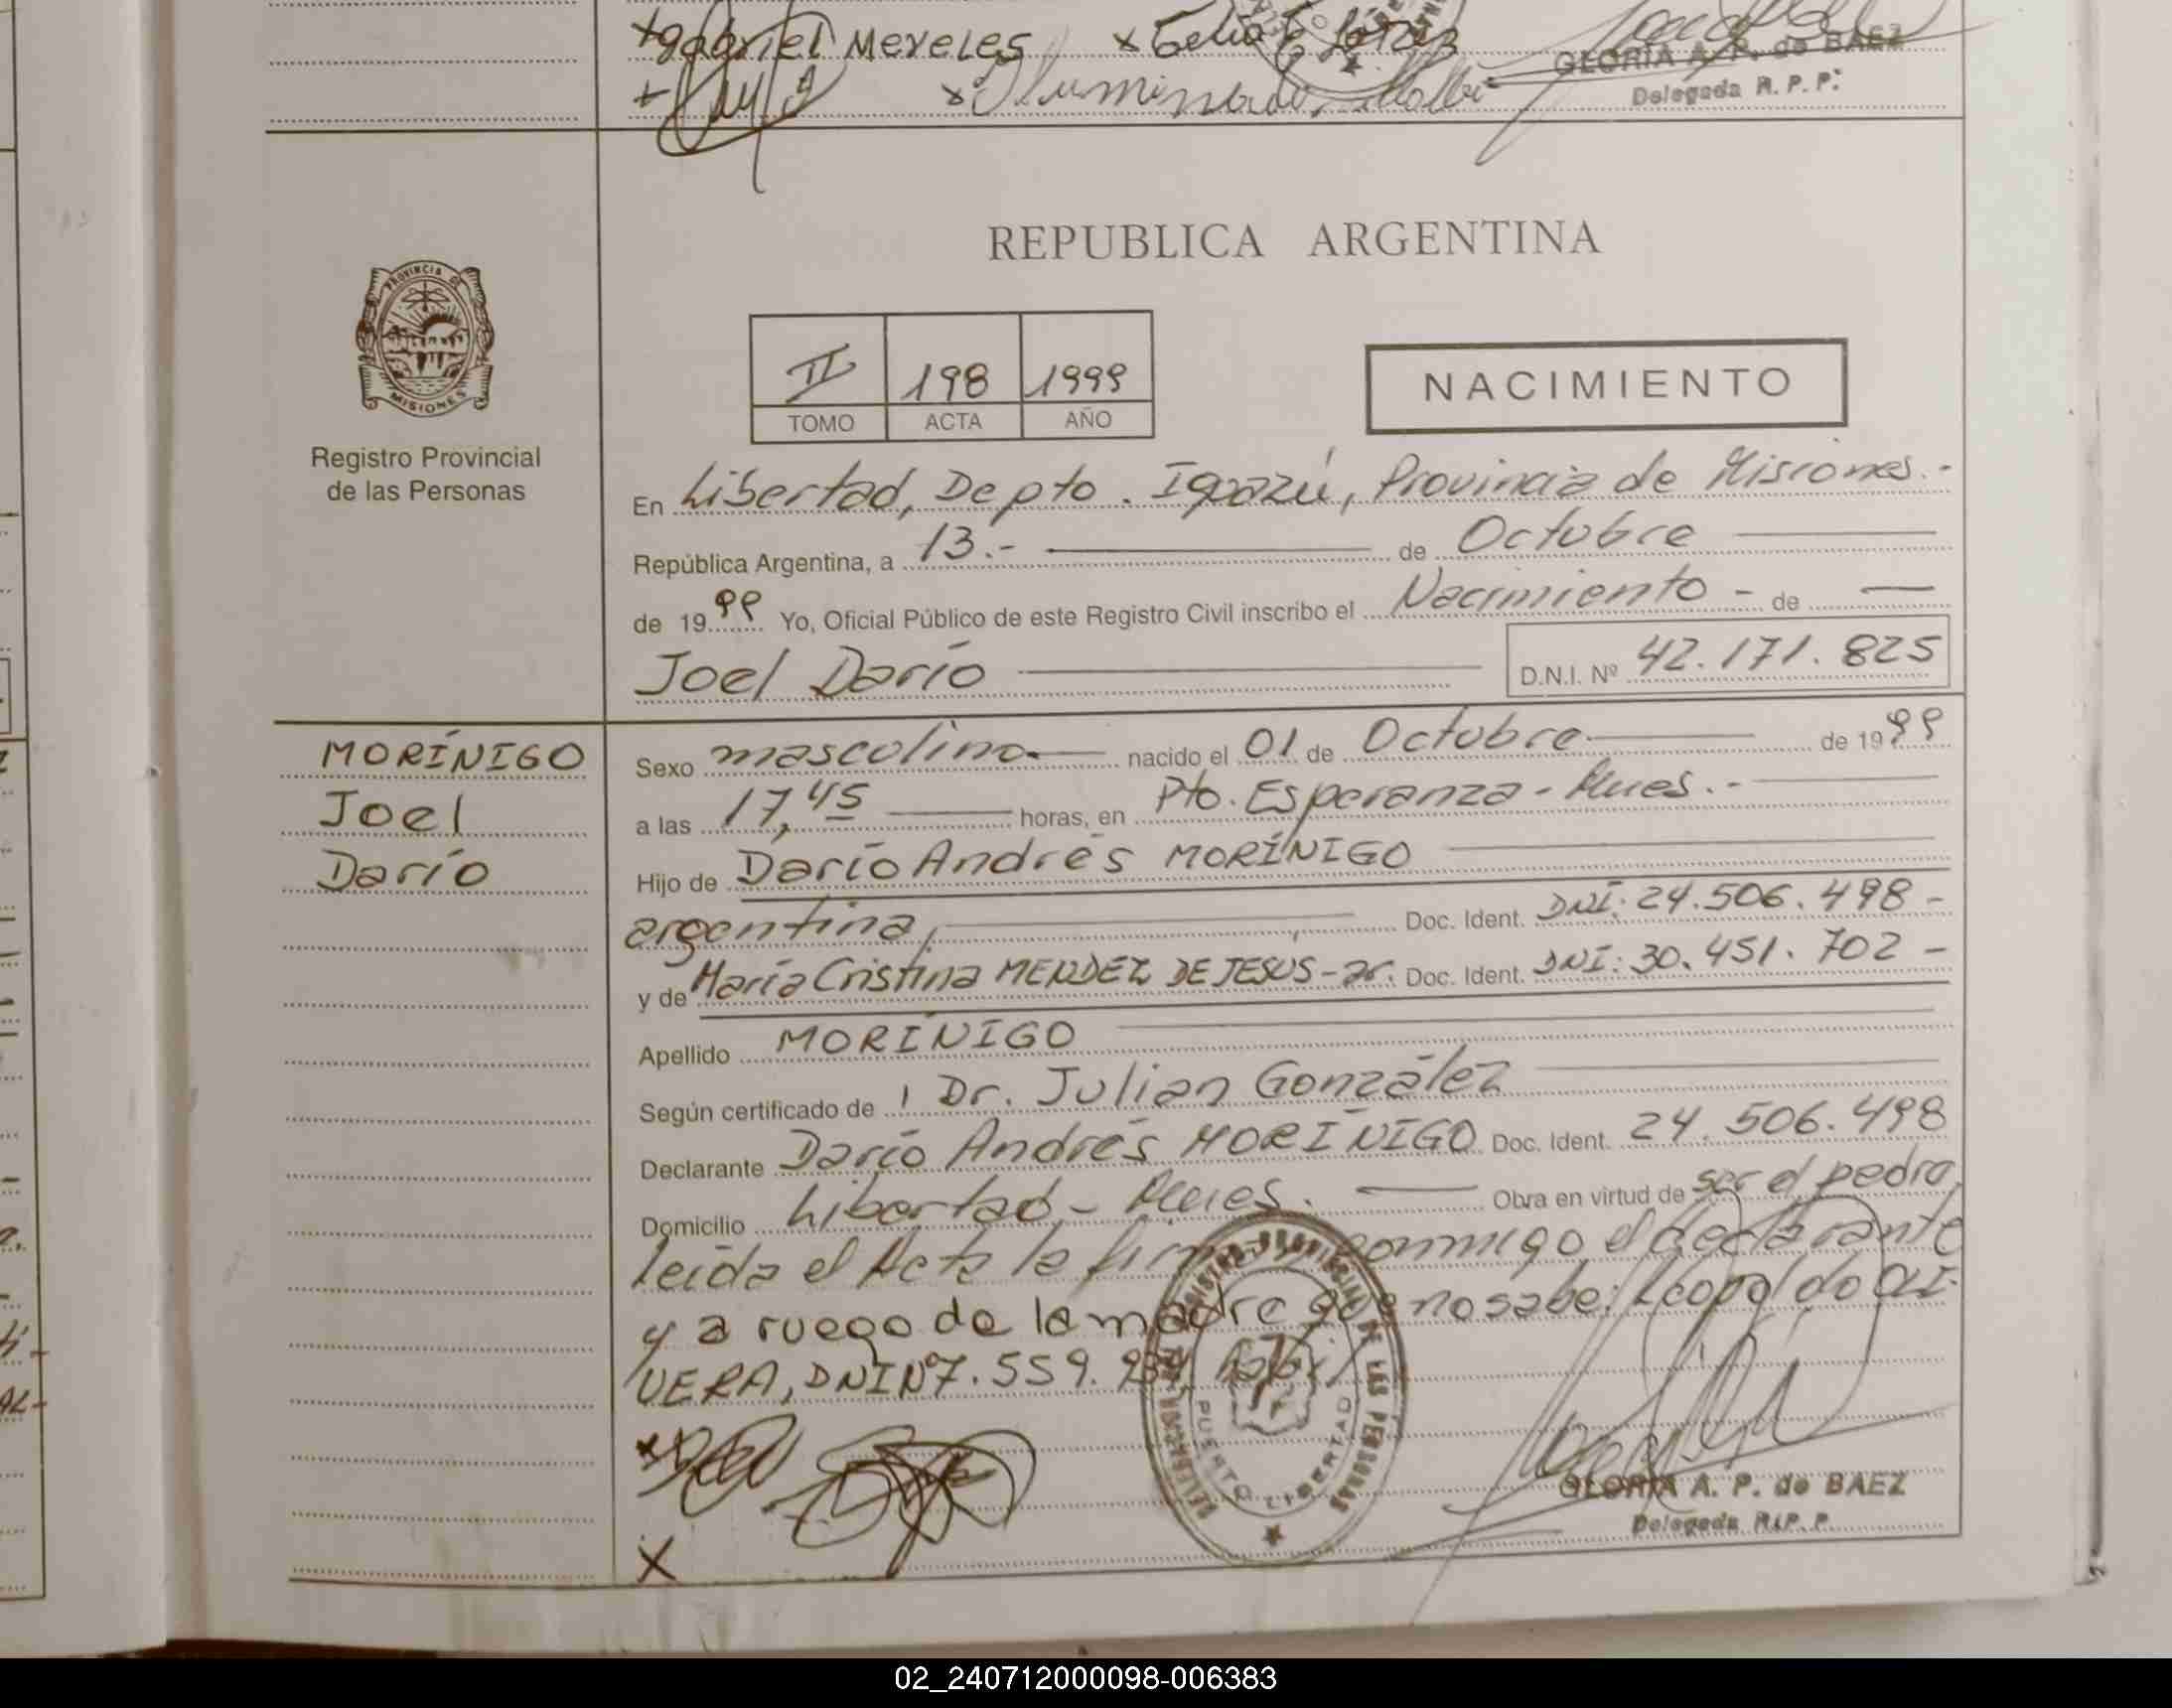 xgabriel Mereles
GLORIA A. P. de BAEZ
Delegada R. P. P.
PROVINCIA DE
MISIONES
Registro Provincial
de las Personas
REPUBLICA ARGENTINA
II 198 1999
TOMO ACTA AÑO
NACIMIENTO
En Libertad, Depto. Iguazú, Provincia de Misiones.-
República Argentina, a 13.- de Octubre
de 1999 Yo, Oficial Público de este Registro Civil inscribo el Nacimiento - de
Joel Darío D.N.I. Nº 42.171.825
MORÍNIGO
Joel
Darío
Sexo masculino nacido el 01 de Octubre de 1999
a las 17,45 horas, en Pto. Esperanza - Mnes.-
Hijo de Darío Andrés MORÍNIGO
argentina, Doc. Ident. DNI: 24.506.498 -
y de María Cristina MENDEZ DE JESÚS - ar. Doc. Ident. DNI: 30.451.702 -
Apellido MORÍNIGO
Según certificado de Dr. Julian González
Declarante Darío Andrés MORÍNIGO Doc. Ident. 24.506.498
Domicilio Libertad - Mnes. Obra en virtud de ser el padre
leída el Acta la firma conmigo el declarante
y a ruego de la madre que no sabe: Leopoldo
VERA, DNI Nº 7.559.
REGISTRO PROVINCIAL DE LAS PERSONAS
PUERTO LIBERTAD
X
GLORIA A. P. de BAEZ
Delegada R. P. P.
02_240712000098-006383